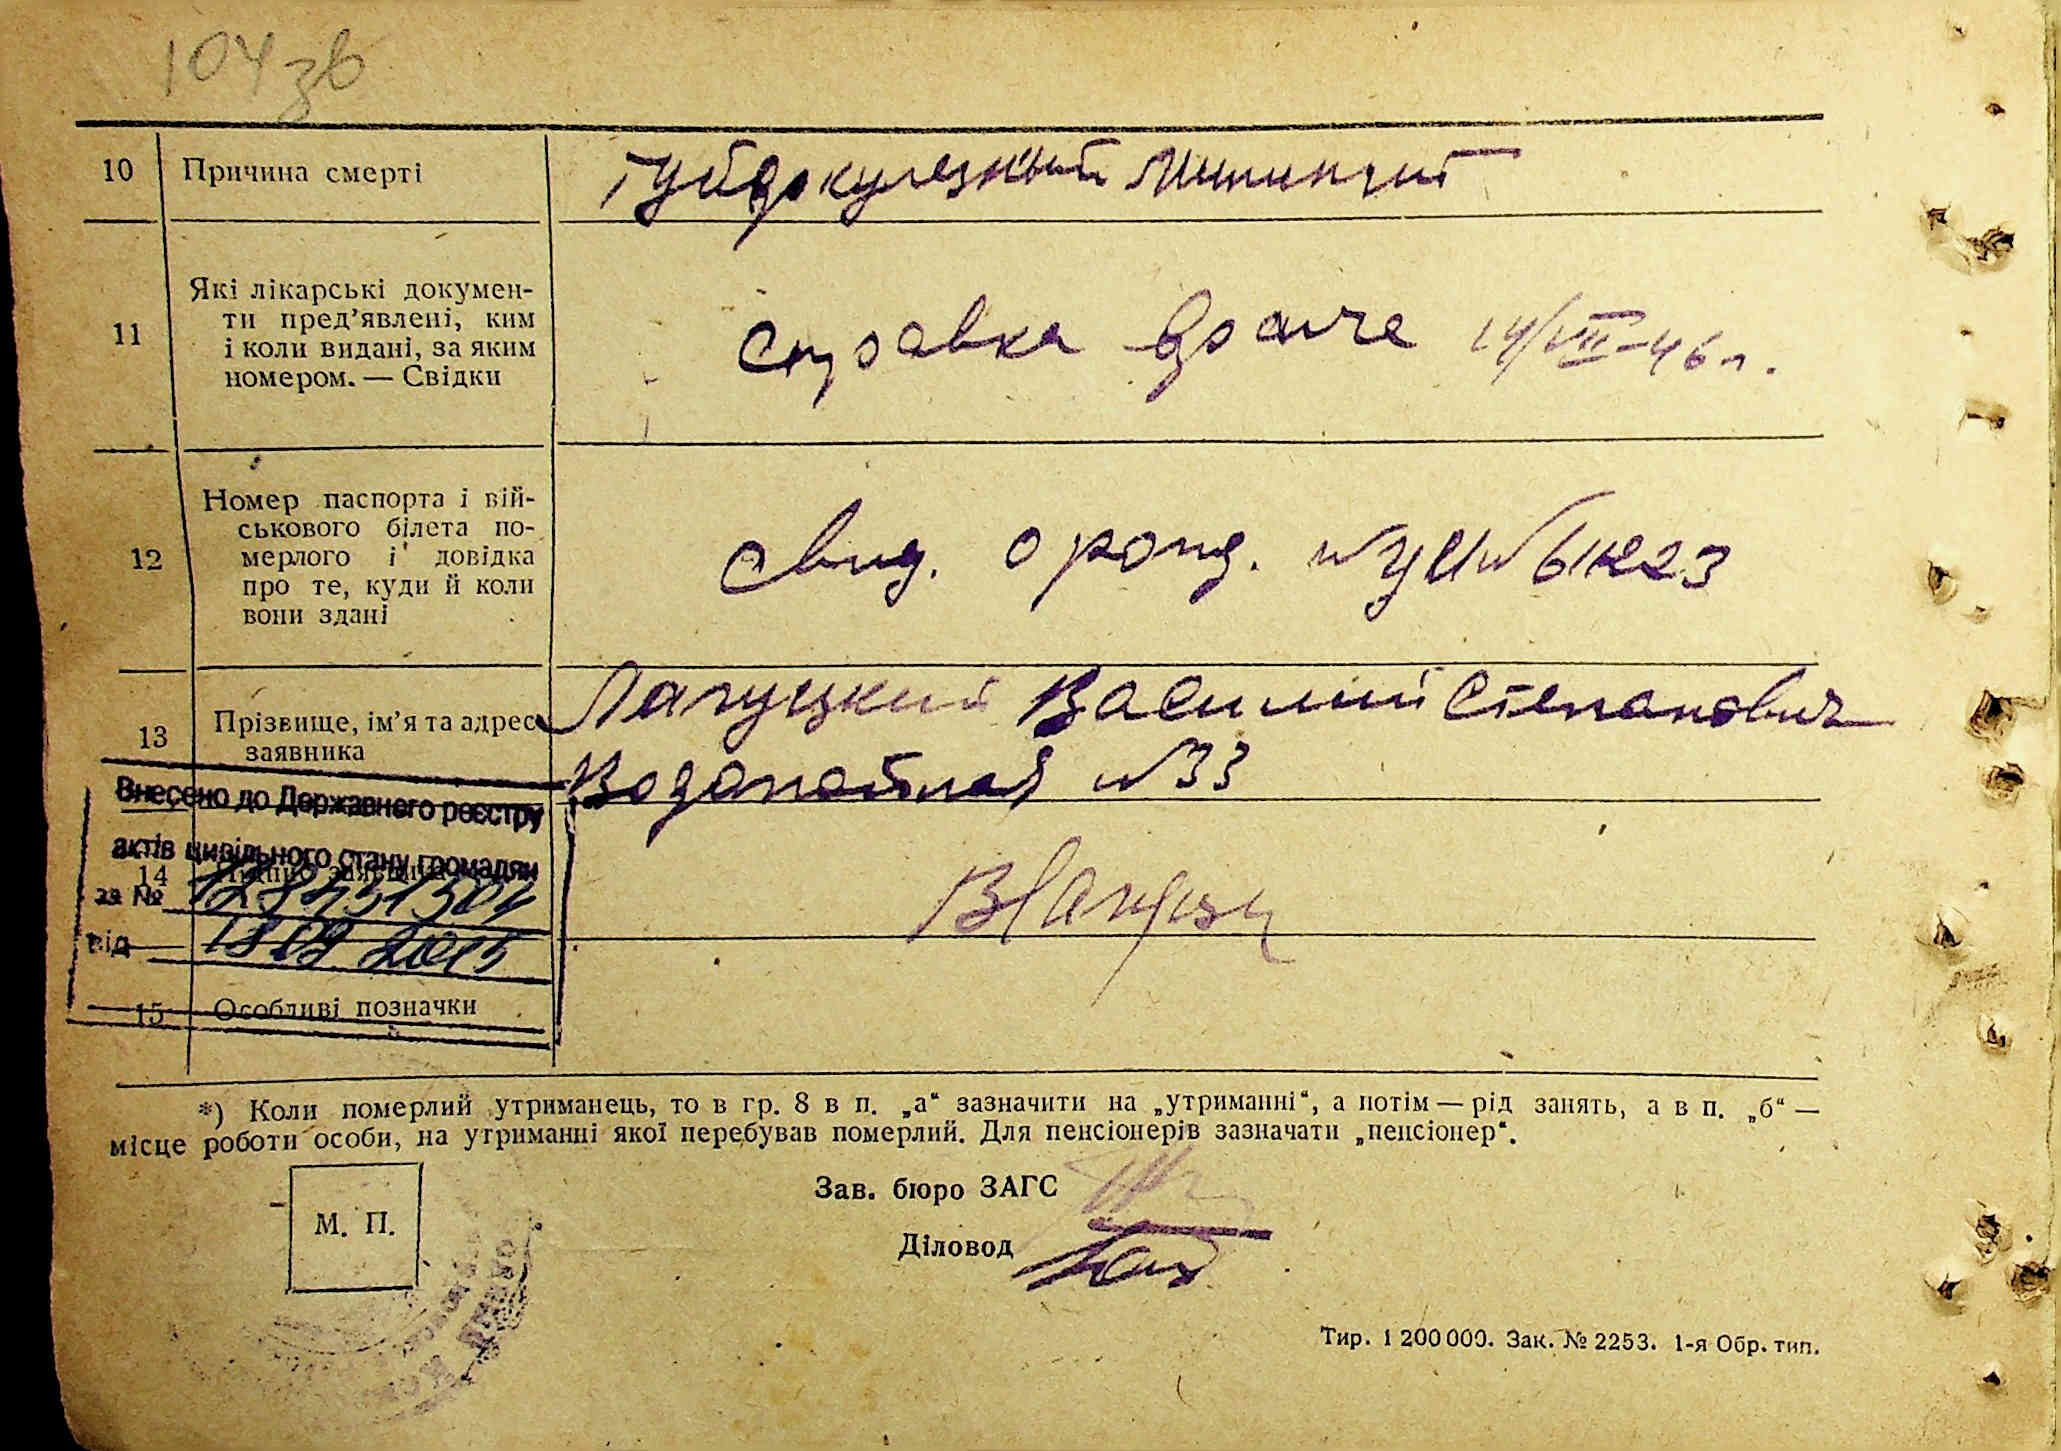 104зв
10 Причина смерті
Менингит
11 Які лікарські докумен-
ти пред’явлені, ким
і коли видані, за яким
номером. — Свідки
Справка врача 14/VIII-46 г.
12 Номер паспорта і вій-
ськового білета по-
мерлого і довідка
про те, куди й коли
вони здані
Свид. о рожд.
13 Прізвище, ім’я та адрес
заявника
Василий Степанович
Водопойная №33
Внесено до Державного реєстру
актів цивільного стану громадян
14 Підпис заявника
за №
від
15 Особливі позначки
*) Коли померлий утриманець, то в гр. 8 в п. „а“ зазначити на „утриманні“, а потім — рід занять, а в п. „б“ —
місце роботи особи, на утриманні якої перебував померлий. Для пенсіонерів зазначати „пенсіонер“.
М. П.
Зав. бюро ЗАГС
Діловод
Тир. 1 200 000. Зак. № 2253. 1-я Обр. тип.